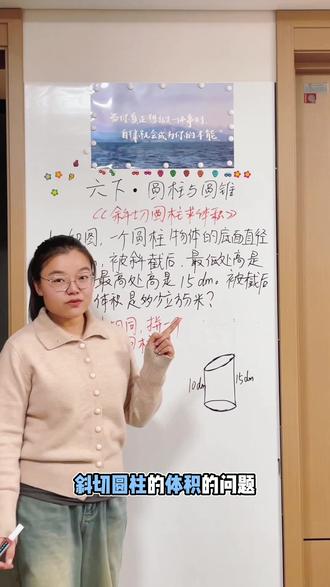 当你真正想做一件事时，
自律就会成为你的本能
六下·圆柱与圆锥
《斜切圆柱求体积》
如图，一个圆柱物体的底面直径
，被斜截后，最低处高是
最高处高是15dm。被截后
体积是多少立方分米？
同，拼
10dm
15dm
斜切圆柱的体积的问题